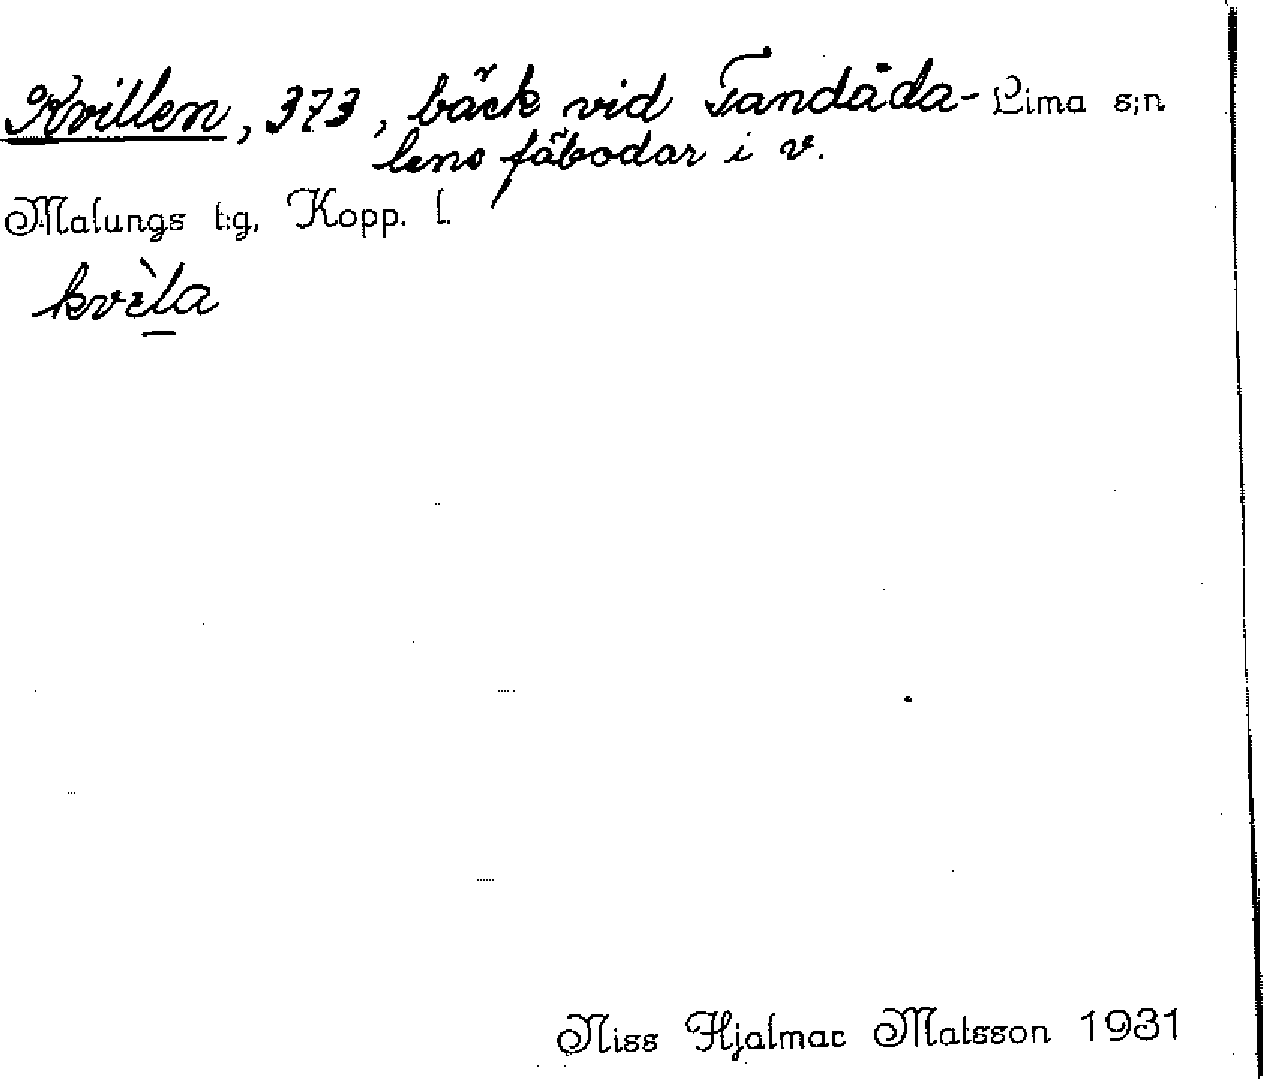 Kvillen, 373, bäck vid Tandåda- Lima s;n
lens fäbodar i v.
Malungs t:g, Kopp. l.
kvìla
Niss Hjalmar Matsson 1931